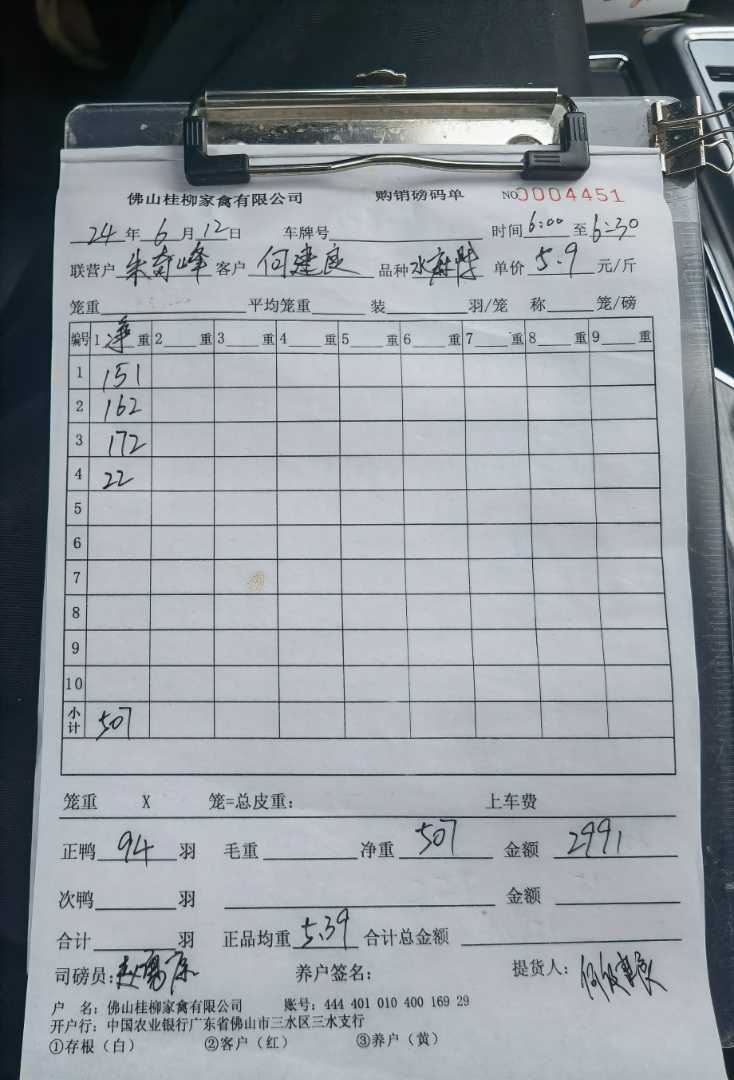 佛山桂柳家禽有限公司 购销磅码单 NO0004451
24年6月12日 车牌号 时间6:00至6:30
联营户朱奇峰 客户何建良 品种水麻鸭 单价5.9元/斤
笼重 平均笼重 装 羽/笼 称 笼/磅
编号 1净重 2 重 3 重 4 重 5 重 6 重 7 重 8 重 9 重
1 151
2 162
3 172
4 22
5
6
7
8
9
10
小计 507
笼重 X 笼=总皮重: 上车费
正鸭94羽 毛重 净重507 金额2991
次鸭 羽 金额
合计 羽 正品均重5.39 合计总金额
司磅员: 养户签名: 提货人:
户 名: 佛山桂柳家禽有限公司 账号: 444 401 010 400 169 29
开户行: 中国农业银行广东省佛山市三水区三水支行
①存根(白) ②客户(红) ③养户(黄)